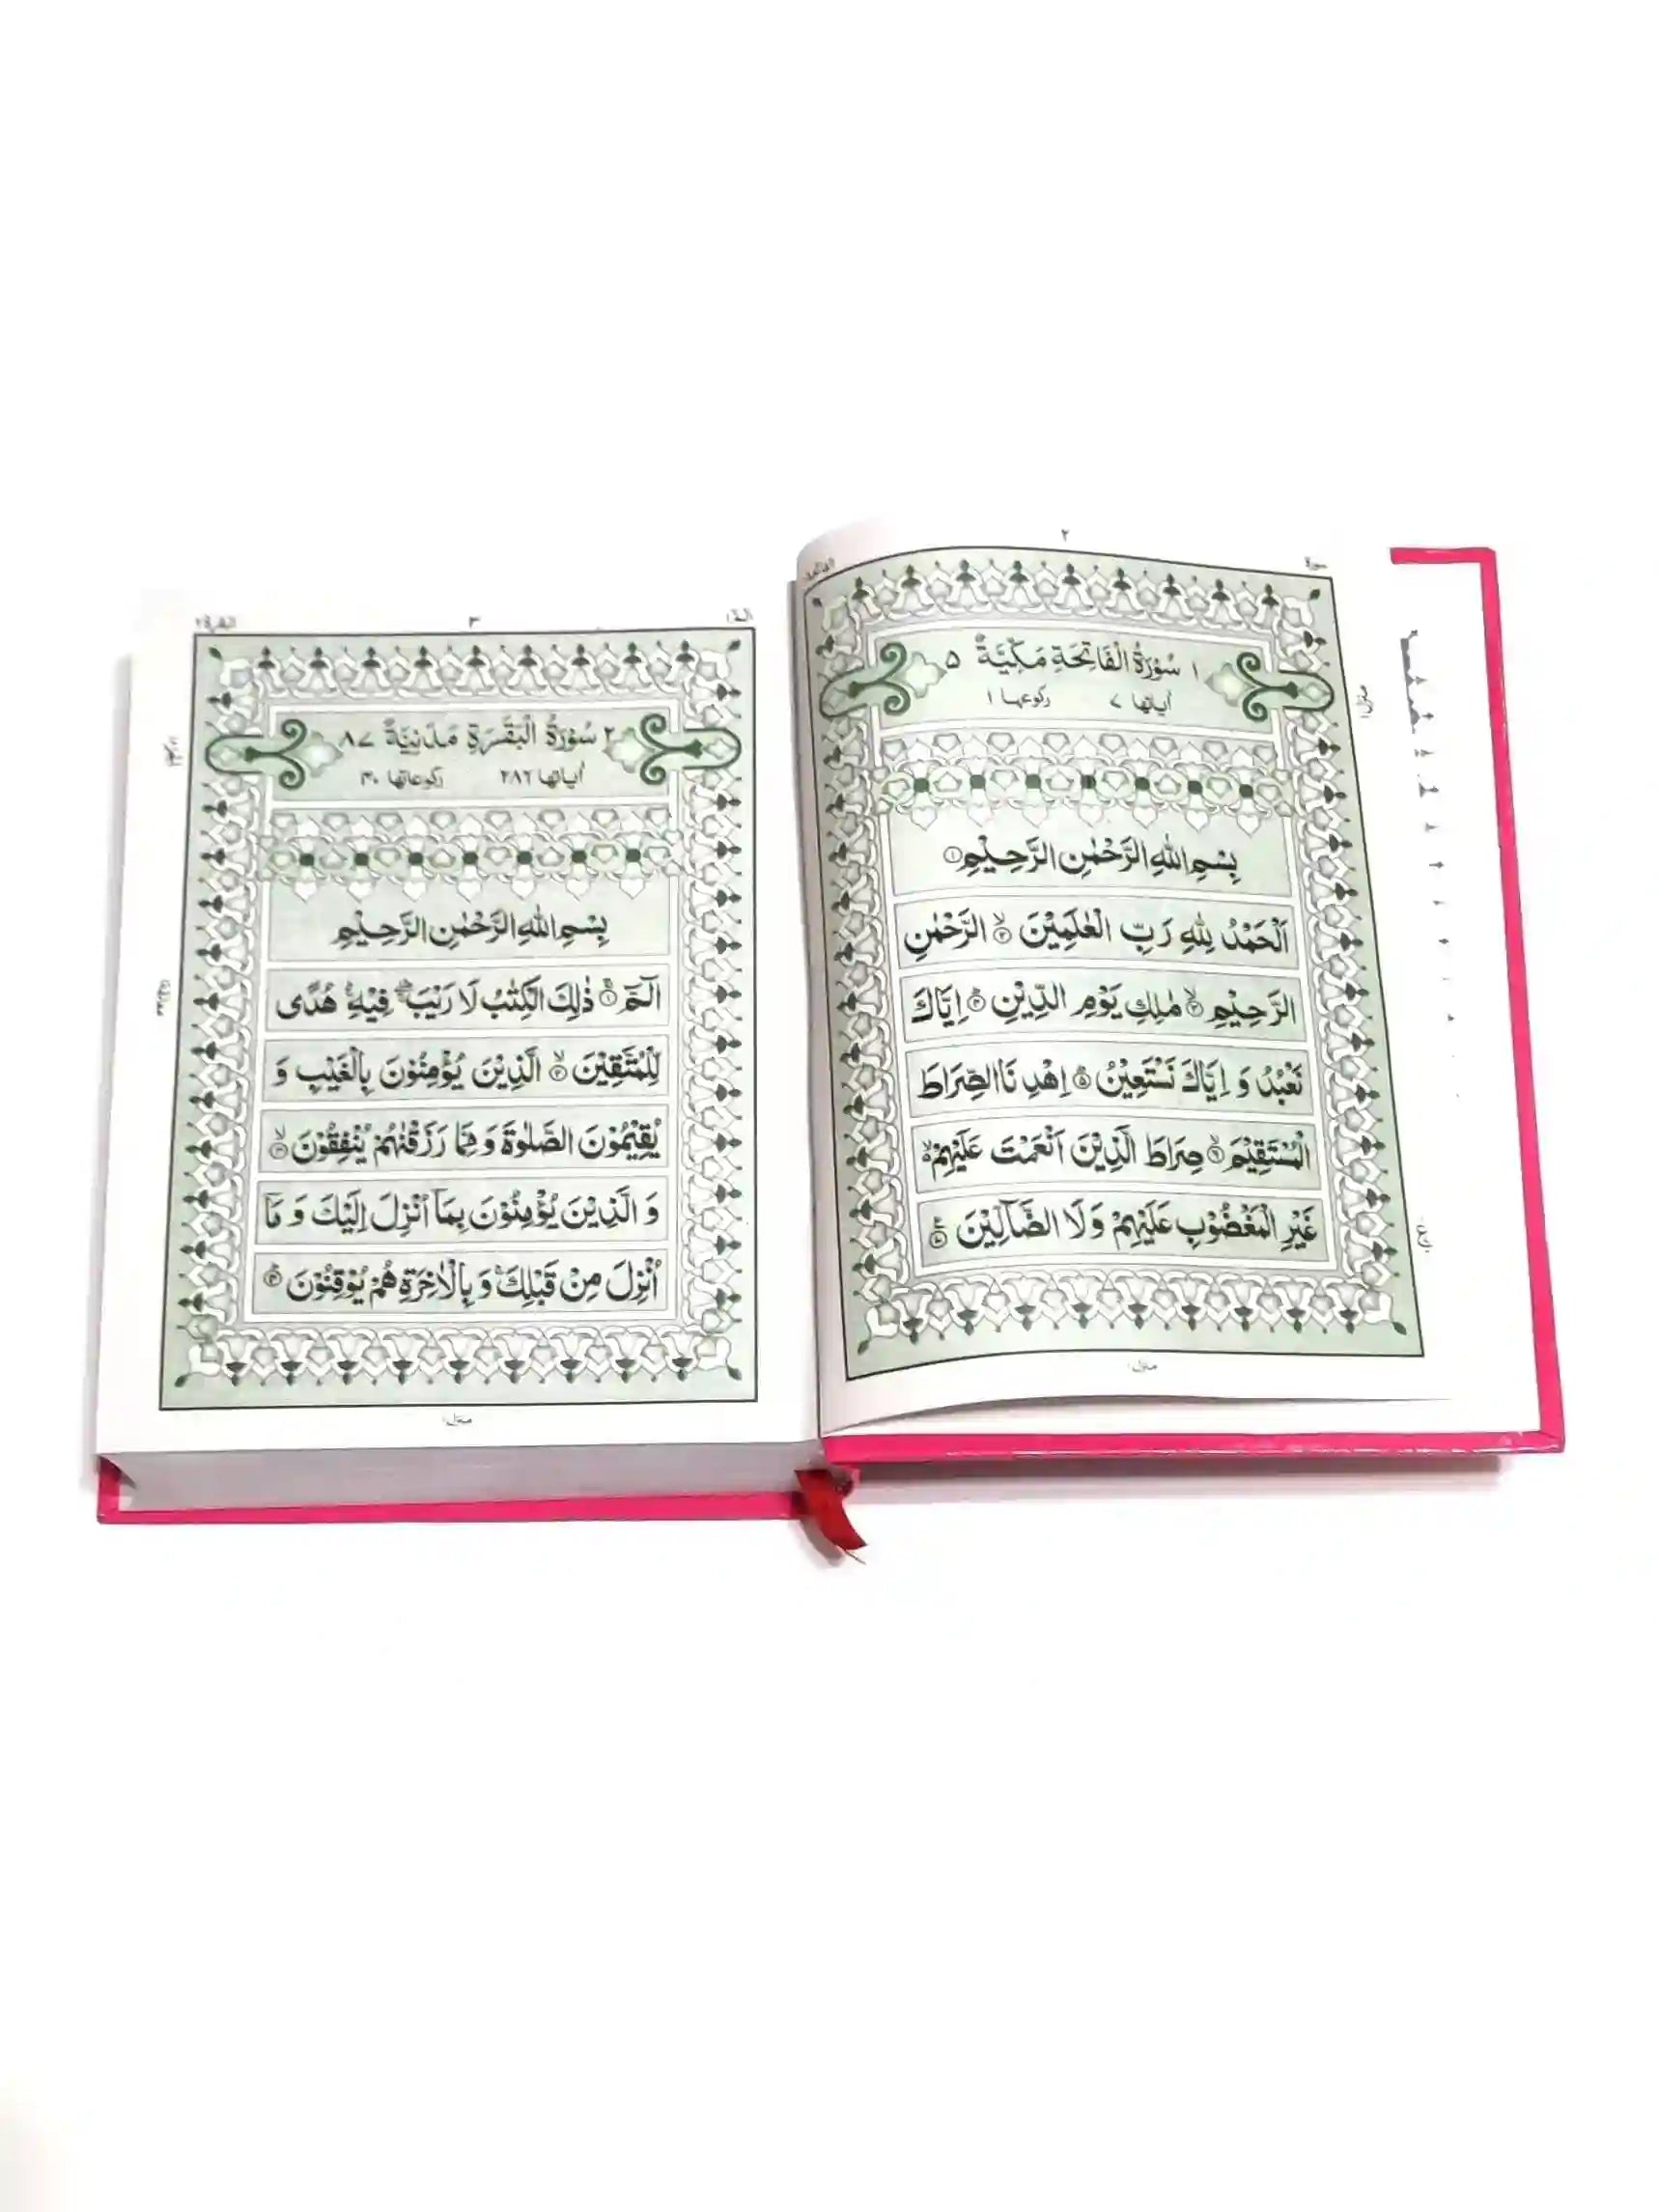 ٢
سورة
الفاتحة
١ سُوْرَةُ الْفَاتِحَةِ مَكِّيَّةٌ ٥
اٰیاتها ٧ رکوعها ١
بِسْمِ اللهِ الرَّحْمٰنِ الرَّحِیْمِ ۝١
اَلْحَمْدُ لِلّٰهِ رَبِّ الْعٰلَمِیْنَ ۝٢ۙ الرَّحْمٰنِ
الرَّحِیْمِ ۝٣ۙ مٰلِكِ یَوْمِ الدِّیْنِ ۝٤ؕ اِیَّاكَ
نَعْبُدُ وَ اِیَّاكَ نَسْتَعِیْنُ ۝٥ؕ اِهْدِ نَا الصِّرَاطَ
الْمُسْتَقِیْمَ ۝٦ۙ صِرَاطَ الَّذِیْنَ اَنْعَمْتَ عَلَیْهِمْ ۙ
غَیْرِ الْمَغْضُوْبِ عَلَیْهِمْ وَلَا الضَّآلِّیْنَ ۝٧
منزل ١
٣
الٓمّٓ ١
البقرة ٢
٢ سُوْرَةُ الْبَقَرَةِ مَدَنِیَّةٌ ٨٧
اٰیاتها ٢٨٦ رکوعاتها ٤٠
بِسْمِ اللهِ الرَّحْمٰنِ الرَّحِیْمِ
الٓمّٓ ۝١ۚ ذٰلِكَ الْكِتٰبُ لَا رَیْبَ ۛۖ فِیْهِ ۛۚ هُدًى
لِّلْمُتَّقِیْنَ ۝٢ۙ الَّذِیْنَ یُؤْمِنُوْنَ بِالْغَیْبِ وَ
یُقِیْمُوْنَ الصَّلٰوةَ وَ مِمَّا رَزَقْنٰهُمْ یُنْفِقُوْنَ ۝٣ۙ
وَ الَّذِیْنَ یُؤْمِنُوْنَ بِمَاۤ اُنْزِلَ اِلَیْكَ وَ مَاۤ
اُنْزِلَ مِنْ قَبْلِكَ ۚ وَ بِالْاٰخِرَةِ هُمْ یُوْقِنُوْنَ ۝٤ؕ
منزل ١